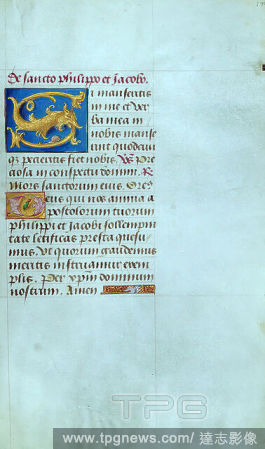 De sancto philippo et iacobo.
Si manseritis
in me et ver
ba mea in
vobis manse
rint quodcu
qz petieritis fiet vobis. Vs Pre
ciosa in conspectu domini. R
Mors sanctorum eius. Ore
Deus qui nos annua a
postolorum tuorum
philippi et iacobi sollempni
tate letificas presta quesu-
mus. Ut quorum gaudemus
meritis instruamur exem
plis. Per xpm dominum
nostrum. Amen
TPG
www.tpgnews.com / 達志影像